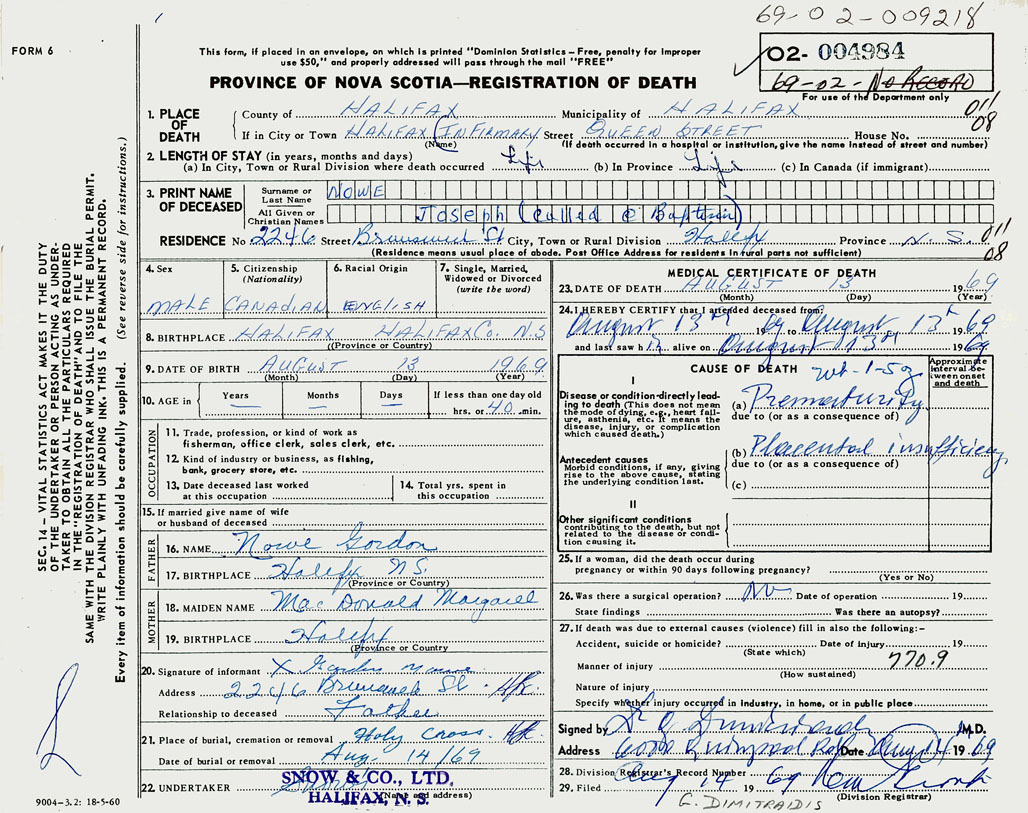 69-02-009218
FORM 6
This form, if placed in an envelope, on which is printed "Dominion Statistics – Free, penalty for improper
use $50," and properly addressed will pass through the mail "FREE"
02- 004984
69-02- NO RECORD
For use of the Department only
PROVINCE OF NOVA SCOTIA—REGISTRATION OF DEATH
1. PLACE OF DEATH
County of HALIFAX Municipality of HALIFAX 011
If in City or Town HALIFAX (INFIRMARY Street QUEEN STREET House No. 08
(Name) (If death occurred in a hospital or institution, give the name instead of street and number)
2. LENGTH OF STAY (in years, months and days)
(a) In City, Town or Rural Division where death occurred Life (b) In Province Life (c) In Canada (if immigrant)
3. PRINT NAME OF DECEASED
Surname or Last Name NOWE
All Given or Christian Names Joseph (called @ Baptism)
RESIDENCE No. 2246 Street Brunswick St City, Town or Rural Division Halifx Province N. S. 011
08
(Residence means usual place of abode. Post Office Address for residents in rural parts not sufficient)
4. Sex MALE
5. Citizenship (Nationality) CANADIAN
6. Racial Origin ENGLISH
7. Single, Married, Widowed or Divorced (write the word)
8. BIRTHPLACE HALIFAX HALIFAX Co. N.S
(Province or Country)
9. DATE OF BIRTH AUGUST 13 1969
(Month) (Day) (Year)
10. AGE in Years — Months — Days — If less than one day old
hrs. or 40 min.
OCCUPATION
11. Trade, profession, or kind of work as
fisherman, office clerk, sales clerk, etc.
12. Kind of industry or business, as fishing,
bank, grocery store, etc.
13. Date deceased last worked
at this occupation
14. Total yrs. spent in
this occupation
15. If married give name of wife
or husband of deceased
FATHER
16. NAME Nowe Gordon
17. BIRTHPLACE Halifx N.S.
(Province or Country)
MOTHER
18. MAIDEN NAME Mac Donald Margaret
19. BIRTHPLACE Halifx
(Province or Country)
20. Signature of informant X Gordon Nowe
Address 2246 Brunswick St. Hfx.
Relationship to deceased Father
21. Place of burial, cremation or removal Holy Cross Hfx
Date of burial or removal Aug. 14/69
22. UNDERTAKER SNOW & CO., LTD.
HALIFAX, N. S.
(Name and address)
9004-3.2: 18-5-60
MEDICAL CERTIFICATE OF DEATH
23. DATE OF DEATH AUGUST 13 1969
(Month) (Day) (Year)
24. I HEREBY CERTIFY that I attended deceased from:
August 13th 69 to August 13th 1969
and last saw h alive on August 13th 1969
CAUSE OF DEATH wt-1-5oz
Approximate interval between onset and death
I
Disease or condition directly leading to death (This does not mean the mode of dying, e.g., heart failure, asthenia, etc. It means the disease, injury, or complication which caused death.)
(a) Prematurity
due to (or as a consequence of)
Antecedent causes
Morbid conditions, if any, giving rise to the above cause, stating the underlying condition last.
(b) Placental insufficiency
due to (or as a consequence of)
(c)
II
Other significant conditions
contributing to the death, but not related to the disease or condition causing it.
25. If a woman, did the death occur during
pregnancy or within 90 days following pregnancy?
(Yes or No)
26. Was there a surgical operation? No Date of operation 19
State findings Was there an autopsy?
27. If death was due to external causes (violence) fill in also the following:–
Accident, suicide or homicide? Date of injury 19
(State which)
Manner of injury 770.9
(How sustained)
Nature of injury
Specify whether injury occurred in industry, in home, or in public place
Signed by M.D.
Address Date Aug 14 1969
28. Division Registrar's Record Number
29. Filed Aug 14 1969
(Division Registrar)
G. DIMITRAIDIS
SEC. 14 – VITAL STATISTICS ACT MAKES IT THE DUTY
OF THE UNDERTAKER OR PERSON ACTING AS UNDER-
TAKER TO OBTAIN ALL THE PARTICULARS REQUIRED
IN THE "REGISTRATION OF DEATH" AND TO FILE THE
SAME WITH THE DIVISION REGISTRAR WHO SHALL ISSUE THE BURIAL PERMIT.
WRITE PLAINLY WITH UNFADING INK. THIS IS A PERMANENT RECORD.
Every item of information should be carefully supplied. (See reverse side for instructions.)